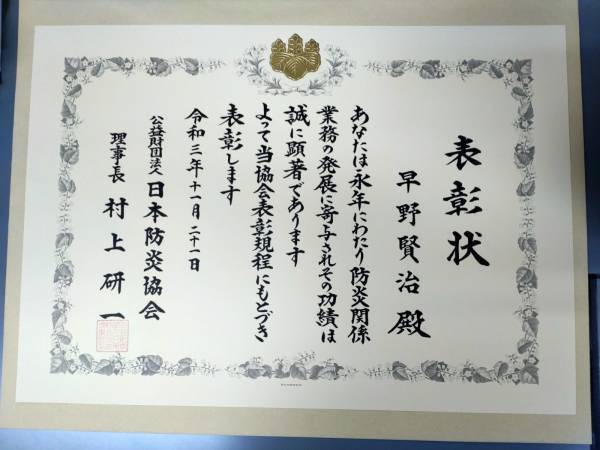 表彰状
早野賢治殿
あなたは永年にわたり防炎関係
業務の発展に寄与されその功績は
誠に顕著であります
よって当協会表彰規程にもとづき
表彰します
令和三年十一月二十一日
公益財団法人 日本防炎協会
理事長 村上研一